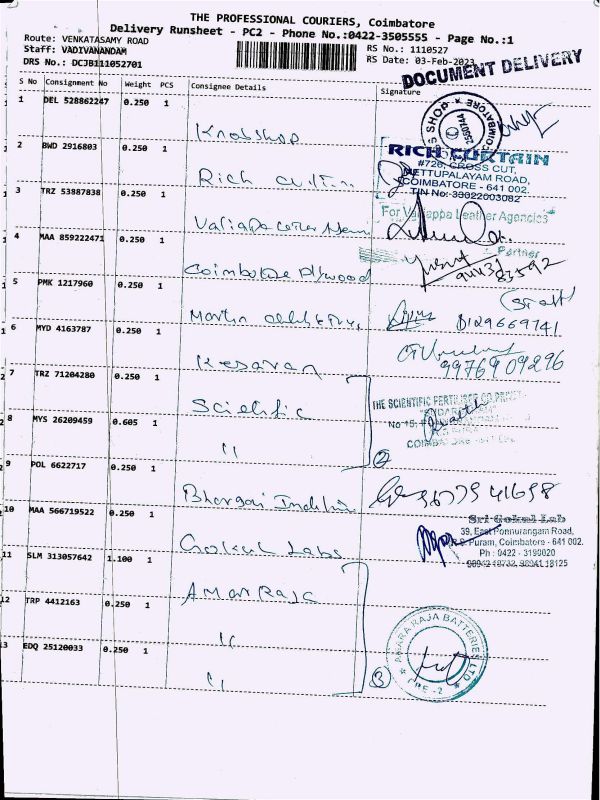 THE PROFESSIONAL COURIERS, Coimbatore
Delivery Runsheet - PC2 - Phone No.:0422-3505555 - Page No.:1
Route: VENKATASAMY ROAD
Staff: VADIVANANDAM
DRS No.: DCJB111052701
RS No.: 1110527
RS Date: 03-Feb-2023
DOCUMENT DELIVERY
S No Consignment No Weight PCS Consignee Details Signature
1 DEL 528862247 0.250 1 Knobshop
SHOP COIMBATORE
2 BWD 2916803 0.250 1 Rich
RICH CURTAIN
#726, CROSS CUT,
METTUPALAYAM ROAD,
COIMBATORE - 641 002.
TIN No: 33022003082
3 TRZ 53887838 0.250 1
For Valiappa Leather Agencies
Partner
4 MAA 859222471 0.250 1 Coimbatore Plywood
5 PMK 1217960 0.250 1 Martin
(Staff)
8129669741
6 MYD 4163787 0.250 1 Kesavan
9976909296
7 TRZ 71204280 0.250 1 Scientific
THE SCIENTIFIC FERTILISER CO PRIVATE
8 MYS 26209459 0.605 1 "
No 15,
COIMBATORE
2
9 POL 6622717 0.250 1
10 MAA 566719522 0.250 1 Gokul Labs
Sri Gokul Lab
39, East Ponnurangam Road,
R.S. Puram, Coimbatore - 641 002.
Ph : 0422 - 3190020
98942 19732, 98941 18125
11 SLM 313057642 1.100 1 Amar Raja
12 TRP 4412163 0.250 1 "
13 EDQ 25120033 0.250 1 "
3
AMARA RAJA BATTERIES LTD
CBE - 2